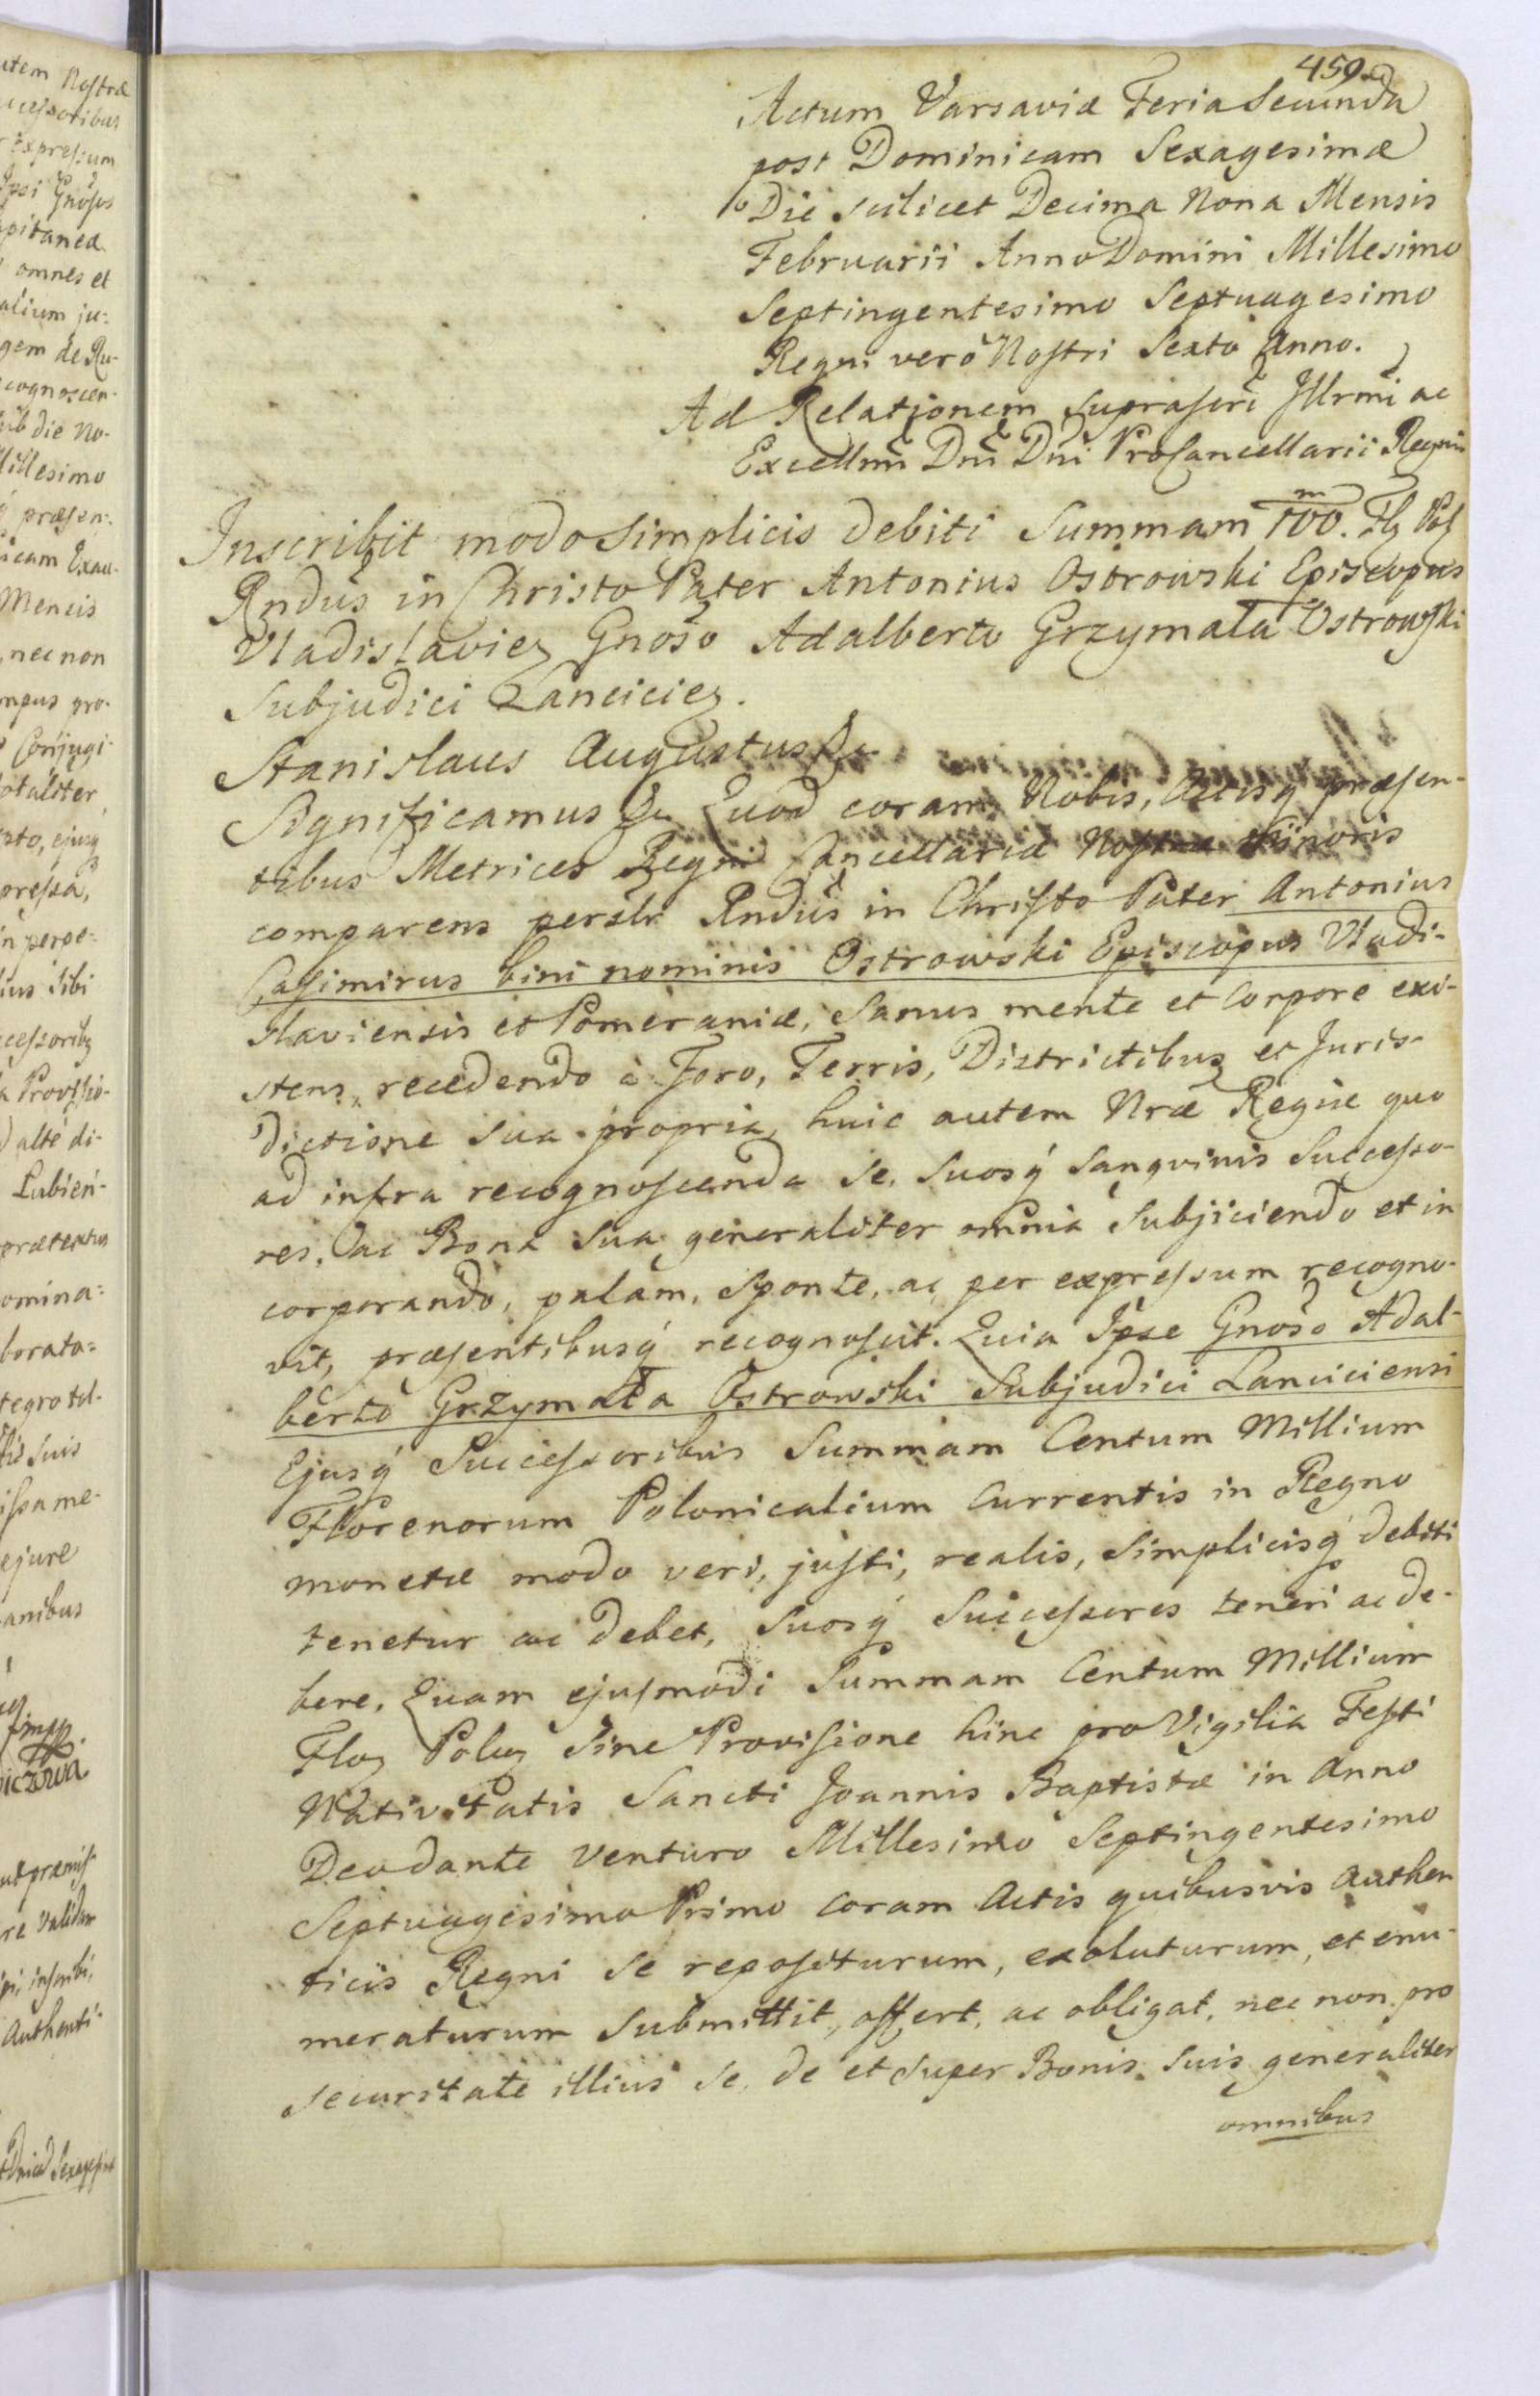 459.
Actum Varsaviæ Feria Secunda
post Dominicam Sexagesimæ
Die scilicet Decima Nona Mensis
Februarii Anno Domini Millesimo
Septingentesimo Septuagesimo
Regni vero Nostri Sexto Anno.
Ad Relationem suprascri Illrmi ac
Excellmi Dni Dni ProCancellarii Regni
Inscribit modo Simplicis debiti Summam 100.m Fl Pol
Rndus in Christo Pater Antonius Ostrowski Episcopus
Vladislavien Gnoso Adalberto Grzymała Ostrowski
Subjudici Lancicien.
Stanislaus Augustus &
Significamus & Quod coram Nobis, Actisq præsen-
tibus Metrices Regni Cancellariæ Nostræ Minoris
comparens persłr Rndus in Christo Pater Antonius
Casimirus bini nominis Ostrowski Episcopus Vladi-
slaviensis et Pomeraniæ, Sanus mente et Corpore exi-
stens, recedendo à Foro, Terris, Districtibus et Juris-
dictione sua propria, huic autem Nræ Regiæ quo
ad infra recognoscenda se, Suosq Sangvinis Successo-
res, ac Bona Sua generaliter omnia Subjiciendo et in
corporando, palam, Sponte, ac per expressum recogno-
vit, præsentibusq recognoscit. Quia Ipse Gnoso Adal-
berto Grzymała Ostrowski Subjudici Lanciciensi
Ejusq Successoribus Summam Centum Millium
Florenorum Polonicalium Currentis in Regno
monetæ modo veri, justi, realis, simplicisq debiti
tenetur ac debet, Suosq Successores teneri ac de-
bere, Quam ejusmodi Summam Centum Millium
Flo Polu Sine Provisione hinc pro Vigilia Festi
Nativitatis Sancti Joannis Baptistæ in Anno
Deo dante venturo Millesimo Septingentesimo
Septuagesimo Primo Coram Actis quibusvis Authen
ticis Regni se repositurum, exoluturum, et enu-
meraturum Submittit, offert, ac obligat, nec non pro
securitate illius se, de et super Bonis Suis generaliter
omnibus